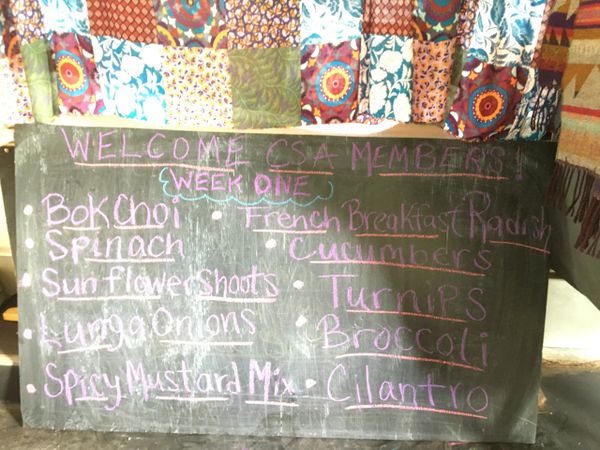 WELCOME CSA MEMBERS!
WEEK ONE
• Bok Choi
• Spinach
• Sunflower Shoots
• Lunga Onions
• Spicy Mustard Mix
• French Breakfast Radish
• Cucumbers
• Turnips
• Broccoli
• Cilantro